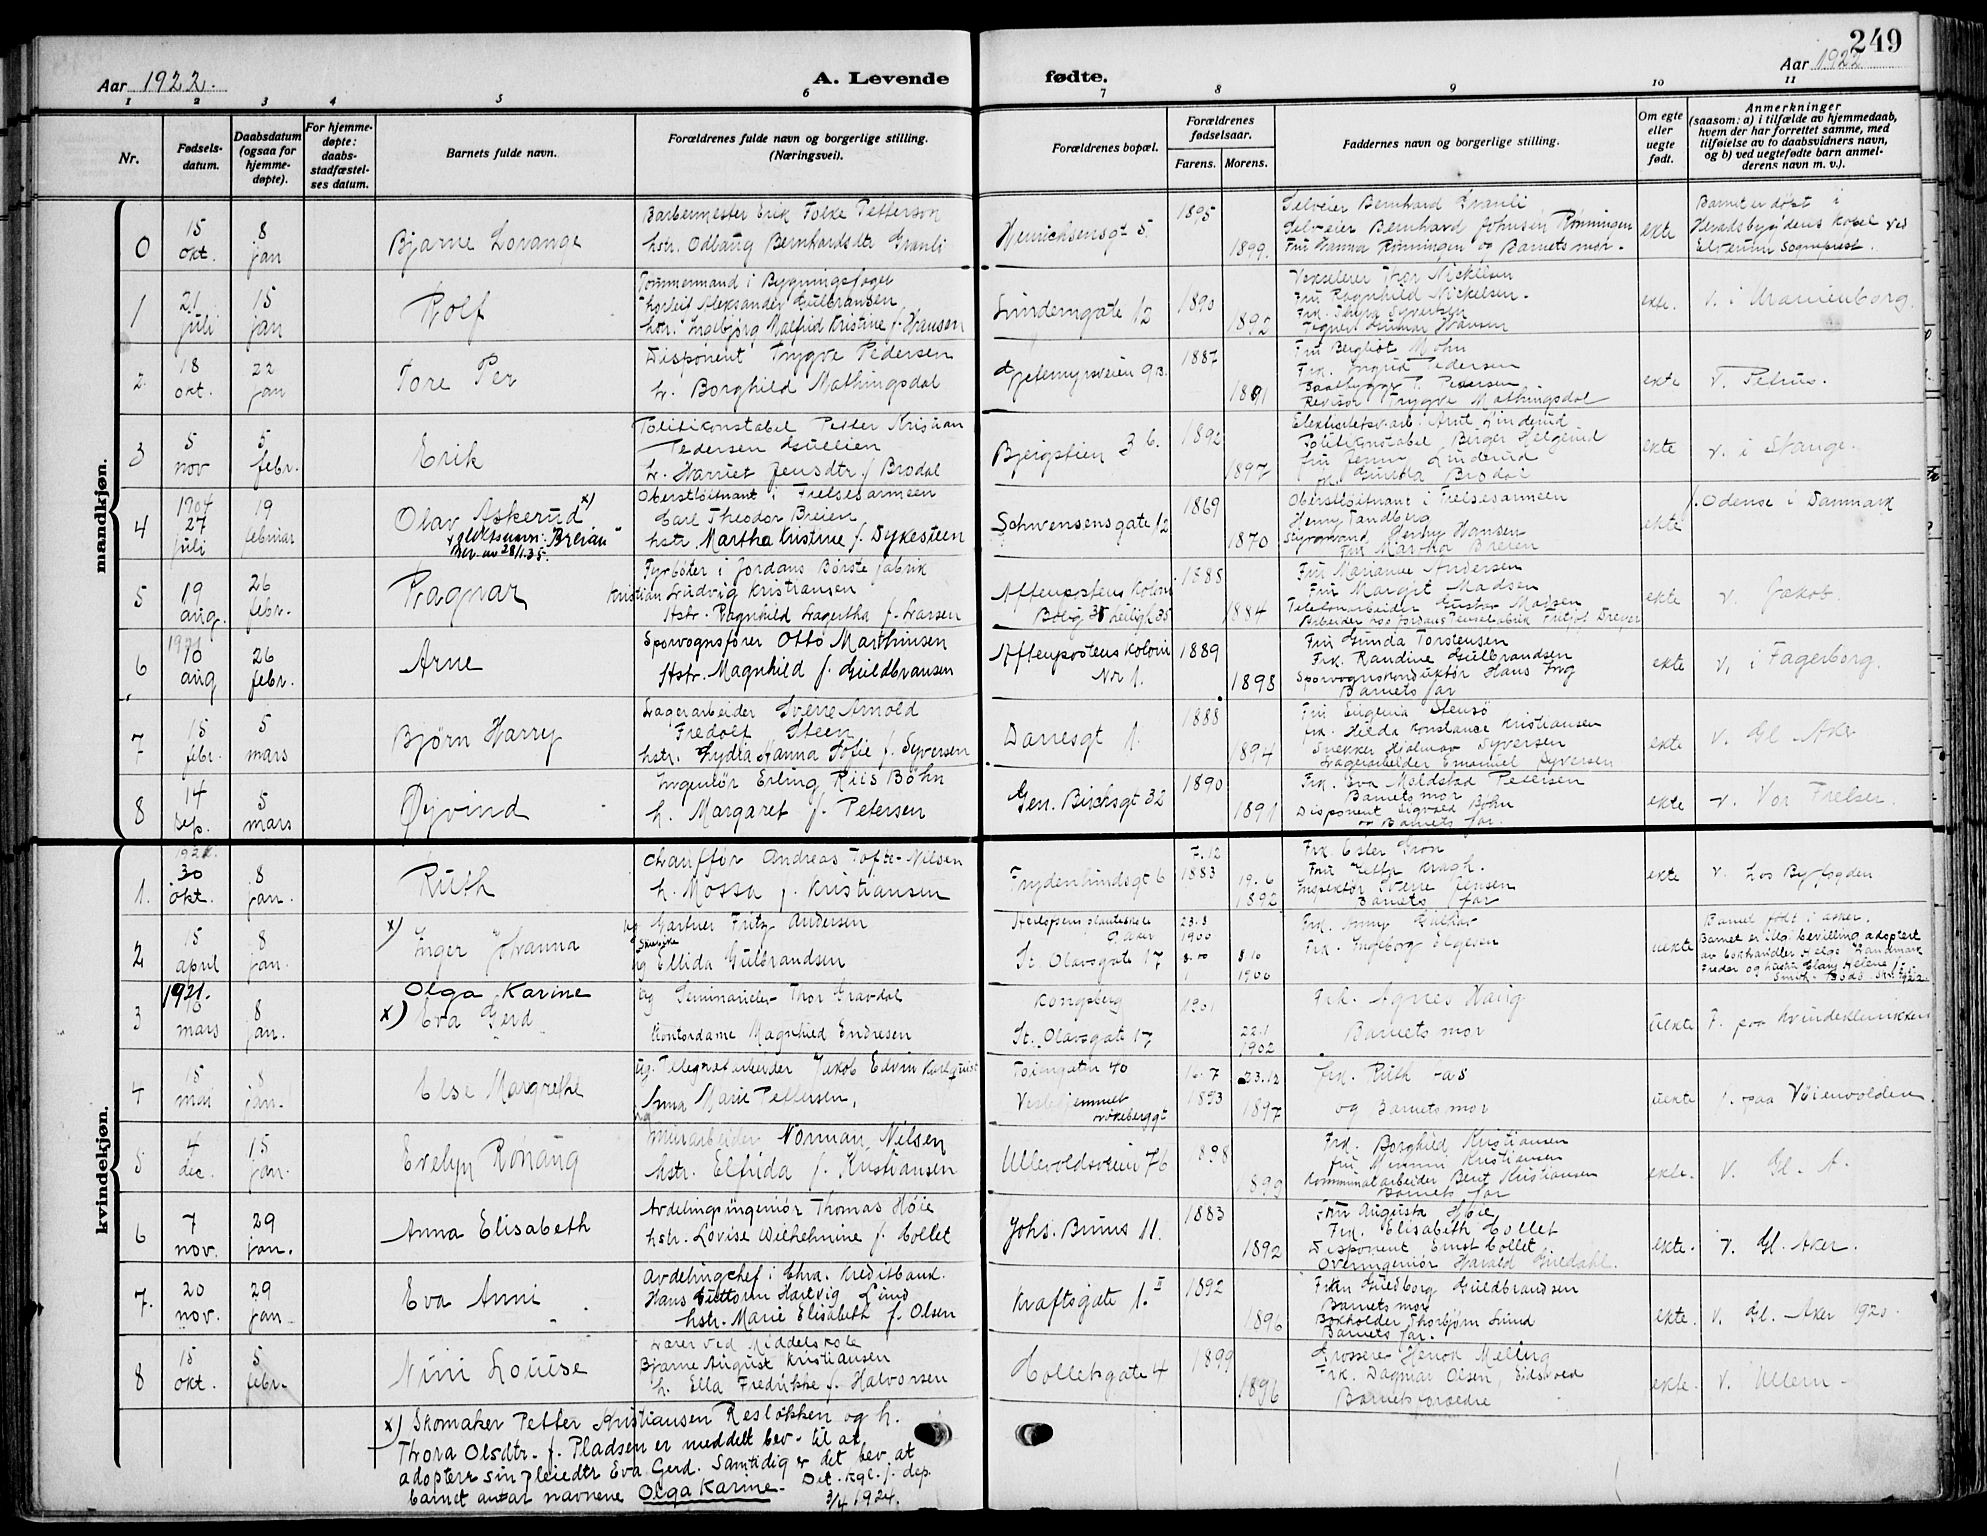 249
Aar 1922.
A. Levende fødte.
Aar 1922
1 2 3 4 5 6 7 8 9 10 11
Nr.
Fødsels-
datum.
Daabsdatum
(ogsaa for
hjemme-
døpte).
For hjemme-
døpte:
daabs-
stadfæstel-
ses datum.
Barnets fulde navn.
Forældrenes fulde navn og borgerlige stilling.
(Næringsvei).
Forældrenes bopæl.
Forældrenes
fødselsaar.
Farens. Morens.
Faddernes navn og borgerlige stilling.
Om egte
eller
uegte
født.
Anmerkninger
(saasom: a) i tilfælde av hjemmedaab,
hvem der har forrettet samme, med
tilføielse av to daabsvidners navn,
og b) ved uegtefødte barn anmel-
derens navn m. v.).
mandkjøn.
0
15 okt.
8 jan
Bjarne Lorange
Barbermester Erik Folke Petterson
hstr. Odbaug Bernhardsdtr Granli
Henrichsensgt 5
1895
1899.
Selveier Bernhard Granli
Selveier Bernhard Johnsen Rønningen
Fru Hanna Rønningen og Barnets mor.
ekte
Barnet er døpt i
Heradsbygdens kapel ved
Elverum Sogneprest.
1
21 juli
15 jan
Rolf
Tømmermand i Bygningsfaget
Thorleif Aleksander Gulbransen
hstr. Ingebjørg Mathid Kristine f. Hansen
Lindemgate 12
1890
1892
Vekselerer Thor Nickelsen
Fru Ragnhild Nickelsen.
Frk. Thyra Syvertsen
Tegner Gunnar Hansen
ekte.
v. i Uranienborg.
2
18 okt.
22 jan
Tore Per
Disponent Trygve Pedersen
h. Borghild Mathingsdal
Gjetemyrsveien 9 B.
1887
1891
Fru Bergliot Mohn
Frk. Ingrid Pedersen
Baatbygger P. Pedersen
Revisor Trygve Mathingsdal
ekte
v. Petrus.
3
5 nov
5 febr.
Erik
Politikonstabel Petter Kristian
Pedersen Gullien
h. Harriet Jensdtr. f. Brodal
Bjergstien 3 b.
1892
1897
Elektisitetsv.arb. Arnt Linderud
Politikonstabel Birger Helgerud
fru Jenny Linderud
frk. Gunthla Brodal
ekte
v. i Stange.
4
1904
27 juli
19 februar
Olav Askerud x)
slektsnavn: "Breian"
Bev. av 28/1.35.
Oberstløitnant i Frelsesarmeen
Carl Theodor Breien
hstr. Martha Kristine f. Dykesteen
Schwensensgate 12
1869
1870
Oberstløitnant i Frelsesarmeen
Henry Tandberg
Styrmand Henry Hansen
Fru Martha Breien
ekte
f. Odense i Danmark
5
19 aug.
26 febr.
Ragnar
Fyrbøter i Jordans Børste fabrik
Kristian Ludvig Kristiansen
Hstr. Ragnhild Lagertha f. Larsen
Aftenpostens Koloni
Bolig 35 leiligh 35
1888
1884
Fru Marianne Andersen
Fru Margit Madsen
Telefonarbeider Gustav Madsen
Arbeider hos Jordans Penselfabrik Fritjof Dreyer
ekte
v. Jakob.
6
1921
10 aug
26 febr.
Arne
Sporvognsfører Otto Marthinsen
Hstr. Magnhild f. Guldbransen
Aftenpostens Koloni
No 1.
1889
1898
Fru Gunda Torstensen
Frk. Randine Gulbrandsen
Sporvognskonduktør Hans Ing
Barnets far
ekte
v. i Fagerborg.
7
15 febr.
5 mars
Bjørn Harry
Lagerarbeider Sverre Arnold
Fredolf Steen
hstr. Lydia Hanna Sofie f. Syversen
Darresgt 1.
1888
1894
Fru Eugenia Stensø
frk. Hilda Konstance Kristiansen
Snekker Hjalmar Syversen
Lagerarbeider Emanuel Syversen
ekte
v. Gl. Aker
8
14 sep.
5 mars
Øyvind
Ingeniør Erling Riis Bøhn
h. Margaret f. Petersen
Gen. Birchsgt 32
1890
1891
Frk. Eva Moldstad Petersen
Barnets mor
Disponent Sigvald Bøhn
og Barnets far.
ekte
v. Vor Frelser.
kvindekjøn.
1.
1921.
30 okt.
8 jan.
Ruth
Chauffør Andreas Tofte-Nilsen
h. Mossa f. Kristiansen
Frydenlundsgt 6
7.12
1883
19.6
1892
Frk. Ester Gron
Fru Hetty Kragh.
Inspektør Sverre Jensen
Barnets far
ekte
v. Hos Byfogden
2
15 april
8 jan.
x) Inger Johanna
ug Gartner Fritz Andersen
ug Ellida Gulbrandsen
St. Olavsgate 17
23.8
1900
8.10
1900
Frk. Anny
Frk. Ingeborg
uekte
Barnet født i Asker.
Barnet er iflg. bevilling adoptert
av bokhandler Helge
3
1921.
mars
8 jan.
Olga Karine
x) Eva Gerd
ug Seminarielev Thor Gravdal
Kontordame Magnhild Endresen
Kongsberg
St. Olavsgate 17
1901
22.1
1902
Frk. Agnes Haug
Barnets mor
uekte
F. paa Kvindeklinikken
4
15 mai
8 jan.
Else Margrethe
ug. Telegrafarbeider Jakob Edvin Karlquist
ug Anna Marie Pettersen,
Toiengaten 40
1893
23.12
1897
frk. Ruth
og Barnets mor
uekte
f. paa Vøienvolden
5
4 dec.
15 jan.
Evelyn Rønaug
Murarbeider Norman Nilsen
hstr. Elfrida f. Kristiansen
Ullevoldsveien 76
1898
1899
Frk. Borghild Kristiansen
fru Memmi Kristiansen
Kommunalarbeider Bent Kristiansen
Barnets far
ekte.
v. Gl. A.
6
7 nov.
29 jan.
Anna Elisabeth
Avdelingsingeniør Thomas Høie
hstr. Lovise Wilhelmine f. Collet
Johs. Bruns 11.
1883
1892
Fru Augusta Høie
Frk. Elisabeth Collet
Disponent Ernst Collet
Overingeniør Harald Guldahl.
ekte.
v. Gl. Aker.
7.
20 nov.
29 jan
Eva Anni
Avdelingchef i Chra. Kreditbank.
Hans Guttorm Hartvig Lund
hstr. Marie Elisabeth f. Olsen
Kraftsgate 1. II
1892
1896
Frkn Guldborg Guldbrandsen
Barnets mor
Bokholder Thorbjørn Lund
Barnets far.
ekte.
v. Gl. Aker 1920.
8
15 okt.
5 febr.
Nini Louise
Lærer ved Middelskole
Bjarne August Kristiansen
h. Ella Fredrikke f. Halvorsen
Colletsgate 4
1899
1896
Grosserer Henrik Melling
Frk. Dagmar Olsen, Eidsvold
Barnets forældre
ekte.
v. Ullern.
x) Skomaker Petter Kristiansen Resløkken og h.
Thora Olsdtr. f. Pladsen er meddelt bev. til at
adoptere sin pleiedtr Eva Gerd. Samtidig er det bev. at
barnet antar navnene Olga Karine. Det. kgl. f. dep.
3/4 1924.